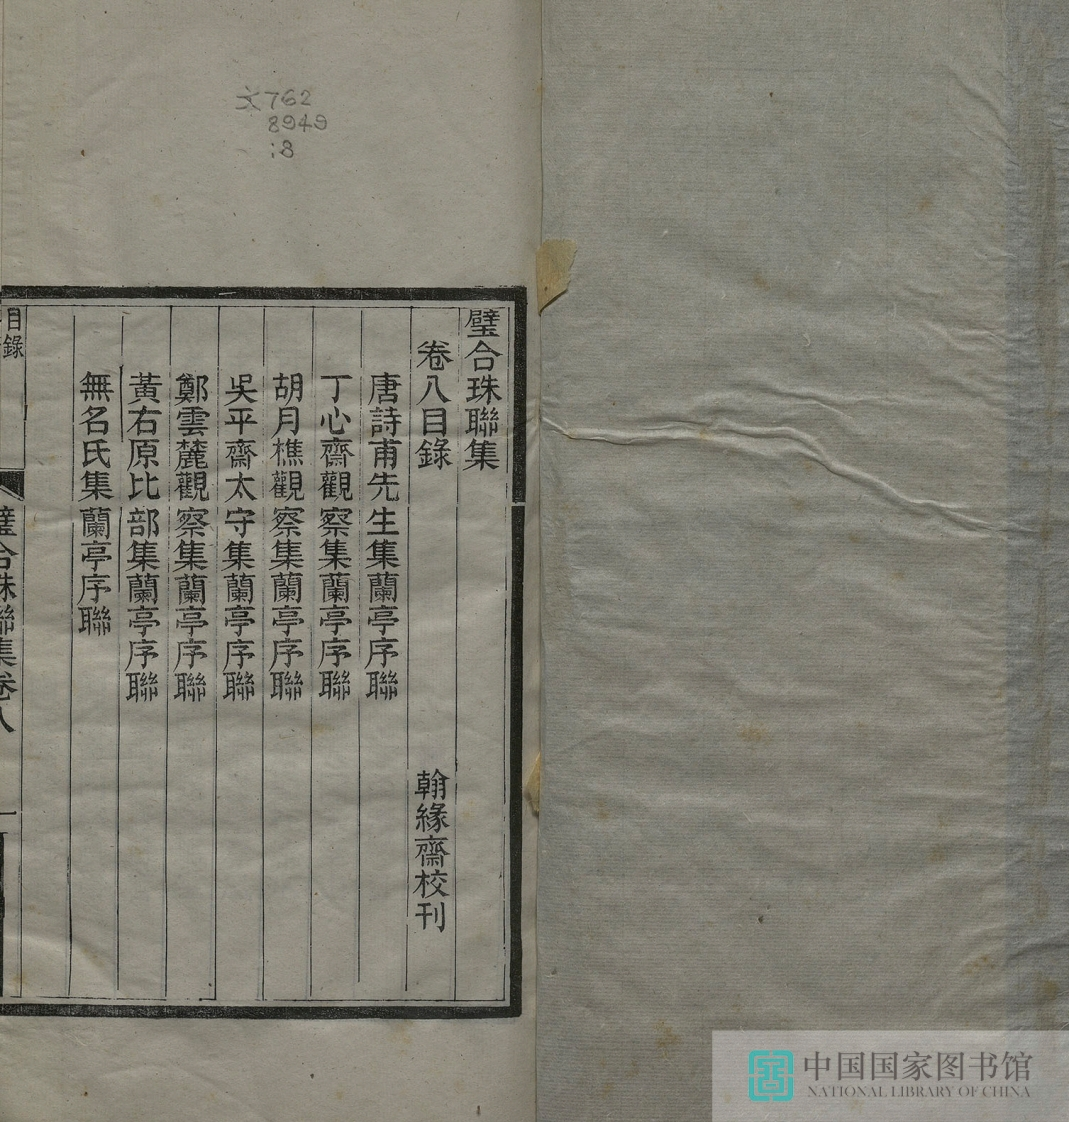 文762
8949
:8
璧合珠聯集
卷八目錄 翰緣齋校刊
唐詩甫先生集蘭亭序聯
丁心齋觀察集蘭亭序聯
胡月樵觀察集蘭亭序聯
吳平齋太守集蘭亭序聯
鄭雲麓觀察集蘭亭序聯
黃右原比部集蘭亭序聯
無名氏集蘭亭序聯
目錄
璧合珠聯集卷八
一
中国国家图书馆
NATIONAL LIBRARY OF CHINA